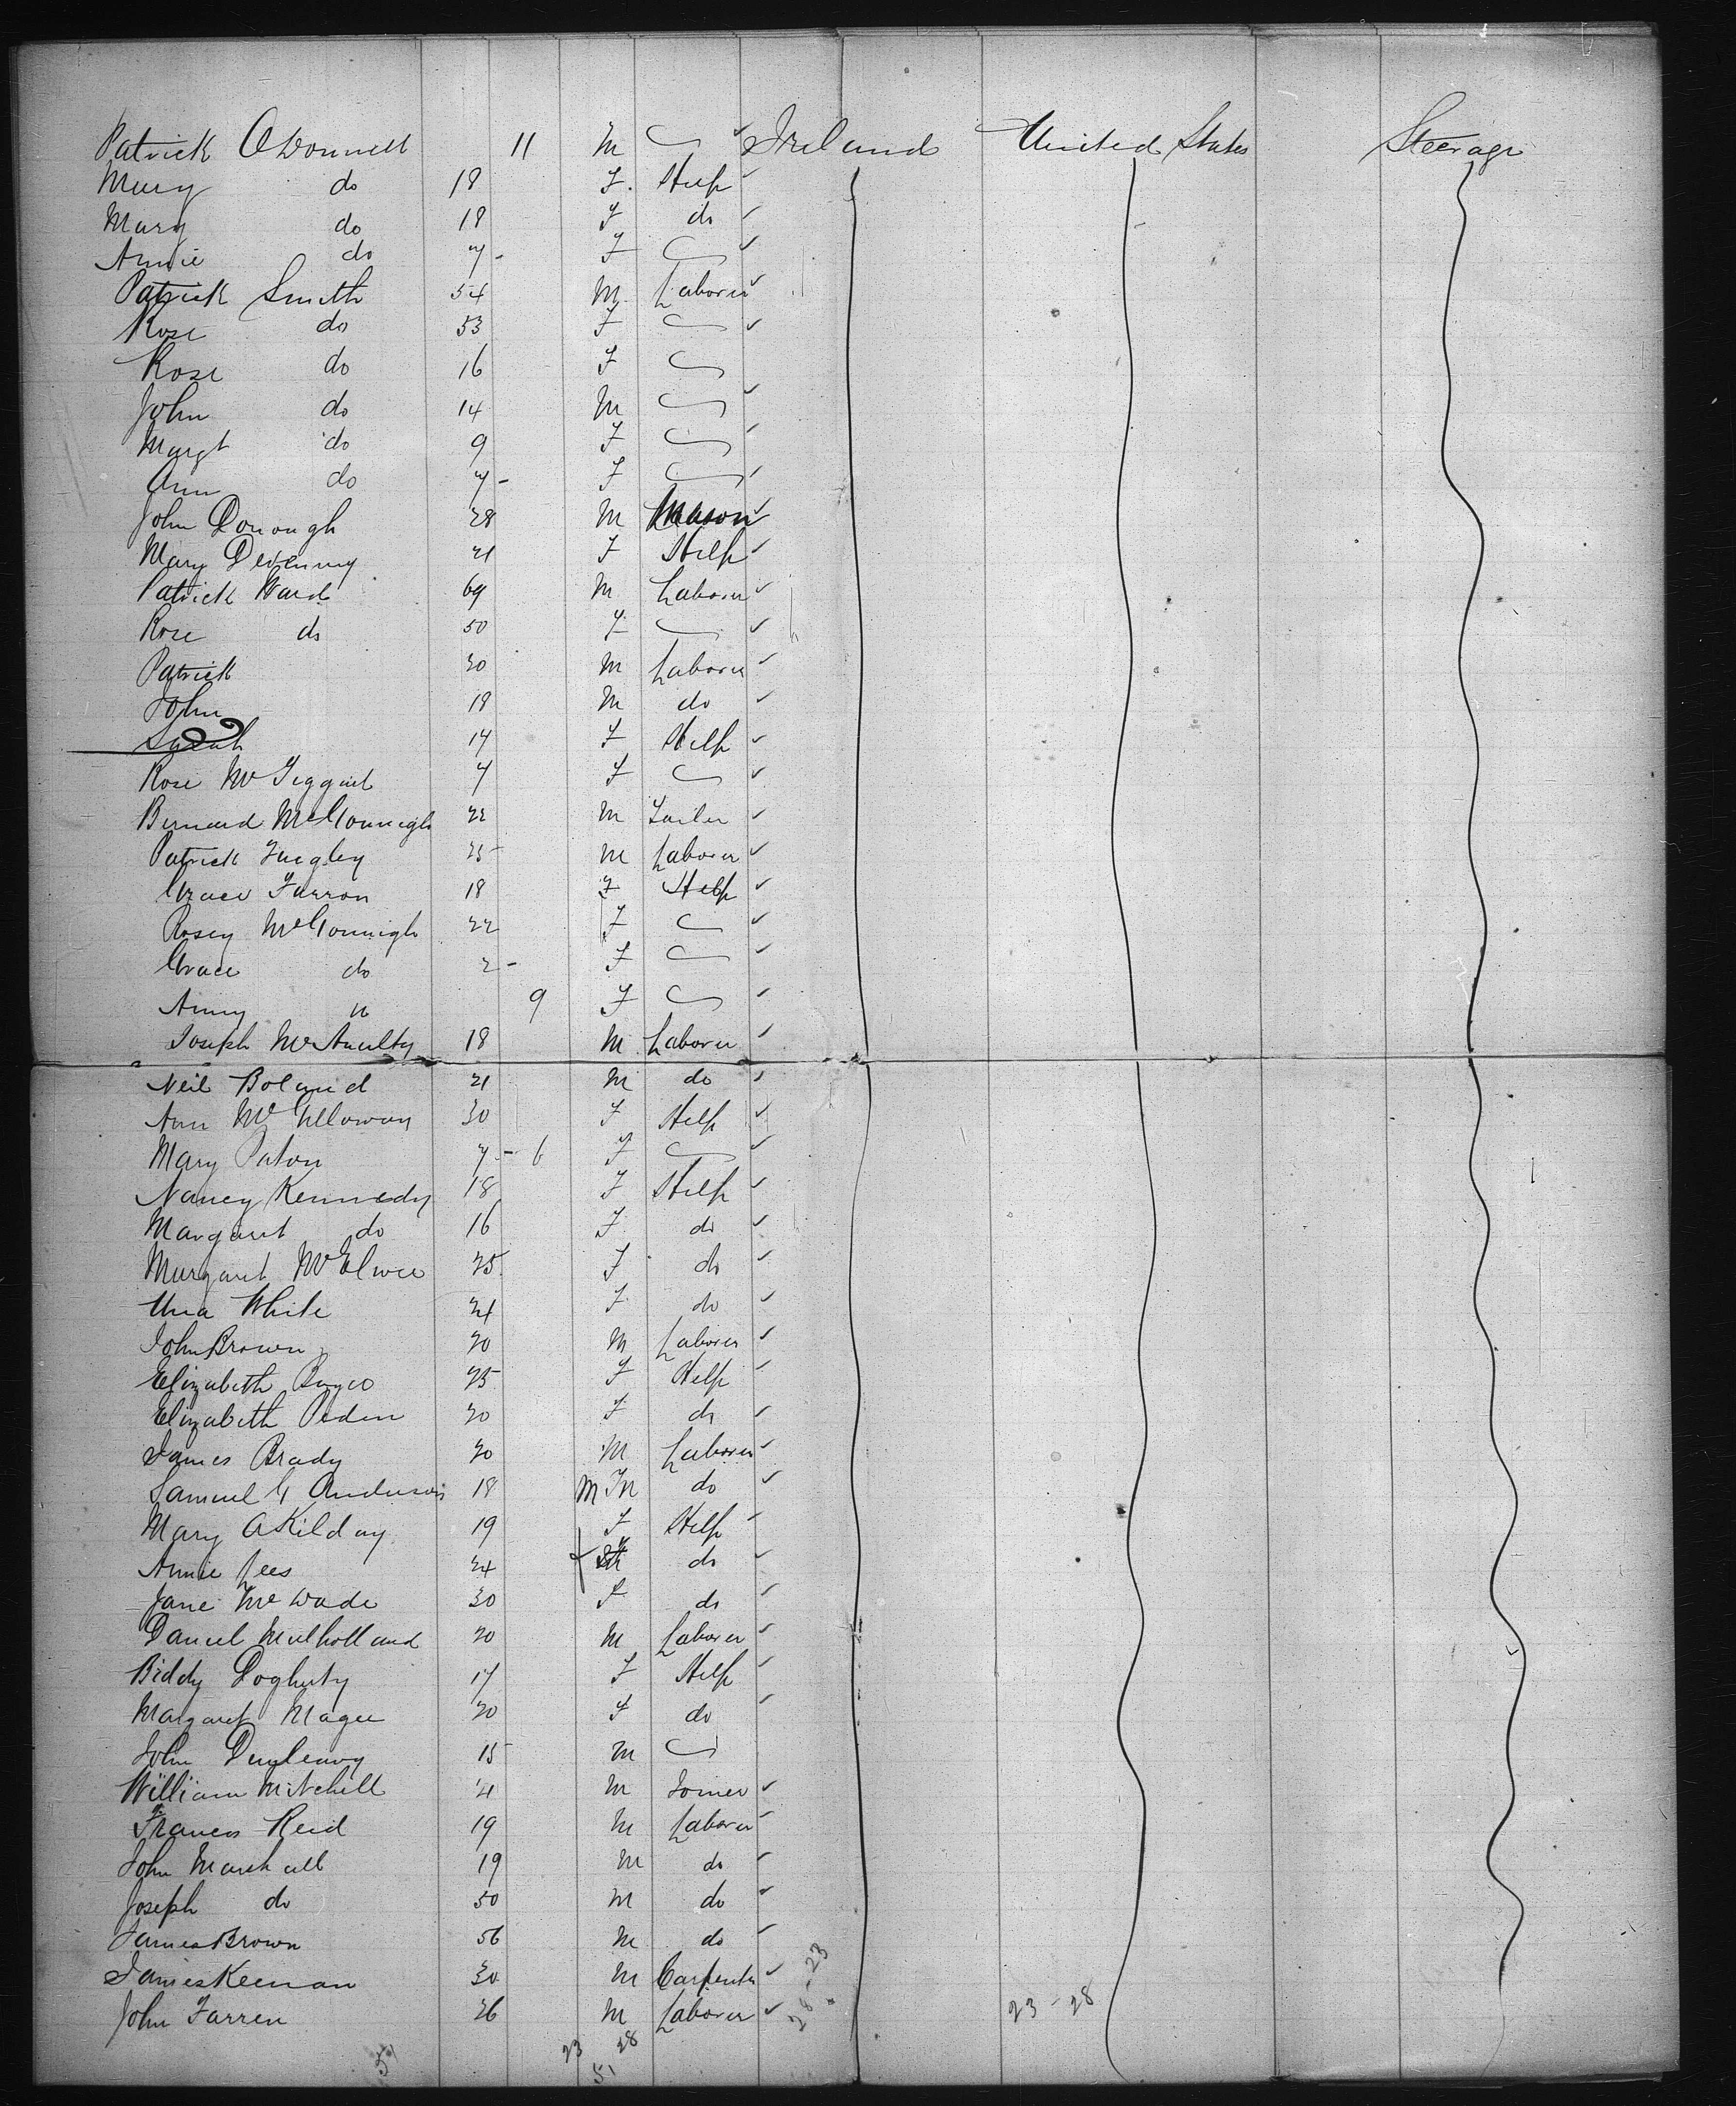 Patrick O'Donnell 11 M Ireland United States Steerage
Mary do 18 F. Help
Mary do 18 F do
Annie do 7 - F
Patrick Smith 54 M Laborer
Rose do 53 F
Rose do 16 F
John do 14 M
Margt do 9 F
Ann do 7 - F
John Donough 28 M Mason
Mary Devenny 21 F Help
Patrick Ward 69 M Laborer
Rose do 50 F
Patrick 20 M Laborer
John 18 M do
Sarah 14 F Help
Rose 7 F
Bernard McGonnigle 22 M Tailor
Patrick 25 M Laborer
Grace Farron 18 F Help
Rosey McGonnigle 22 F
Grace do 2 - F
Anny " 9 F
Joseph McAnulty 18 M Laborer
Neil Boland 21 M do
Ann 30 F Help
Mary Paton 7 - 6 F
Nancy Kennedy 18 F Help
Margaret do 16 F do
Margaret McElwee 25 F do
Una White 24 F do
John Brown 20 M Laborer
Elizabeth Boyce 25 F Help
Elizabeth Peden 20 F do
James Brady 20 M Laborer
Samuel G Anderson 18 M do
Mary A Kilday 19 F Help
Annie Lees 24 F do
Jane McWade 30 F do
Daniel Mulholland 20 M Laborer
Biddy Dogherty 17 F Help
Margaret Magee 20 F do
John Dunleavy 15 M
William Mitchell 21 M Joiner
Francis Reid 19 M Laborer
John Marshall 19 M do
Joseph do 50 M do
James Brown 56 M do
James Keenan 30 M Carpenter 28-23
John Farren 26 M Laborer 23-28
23 28
51 51